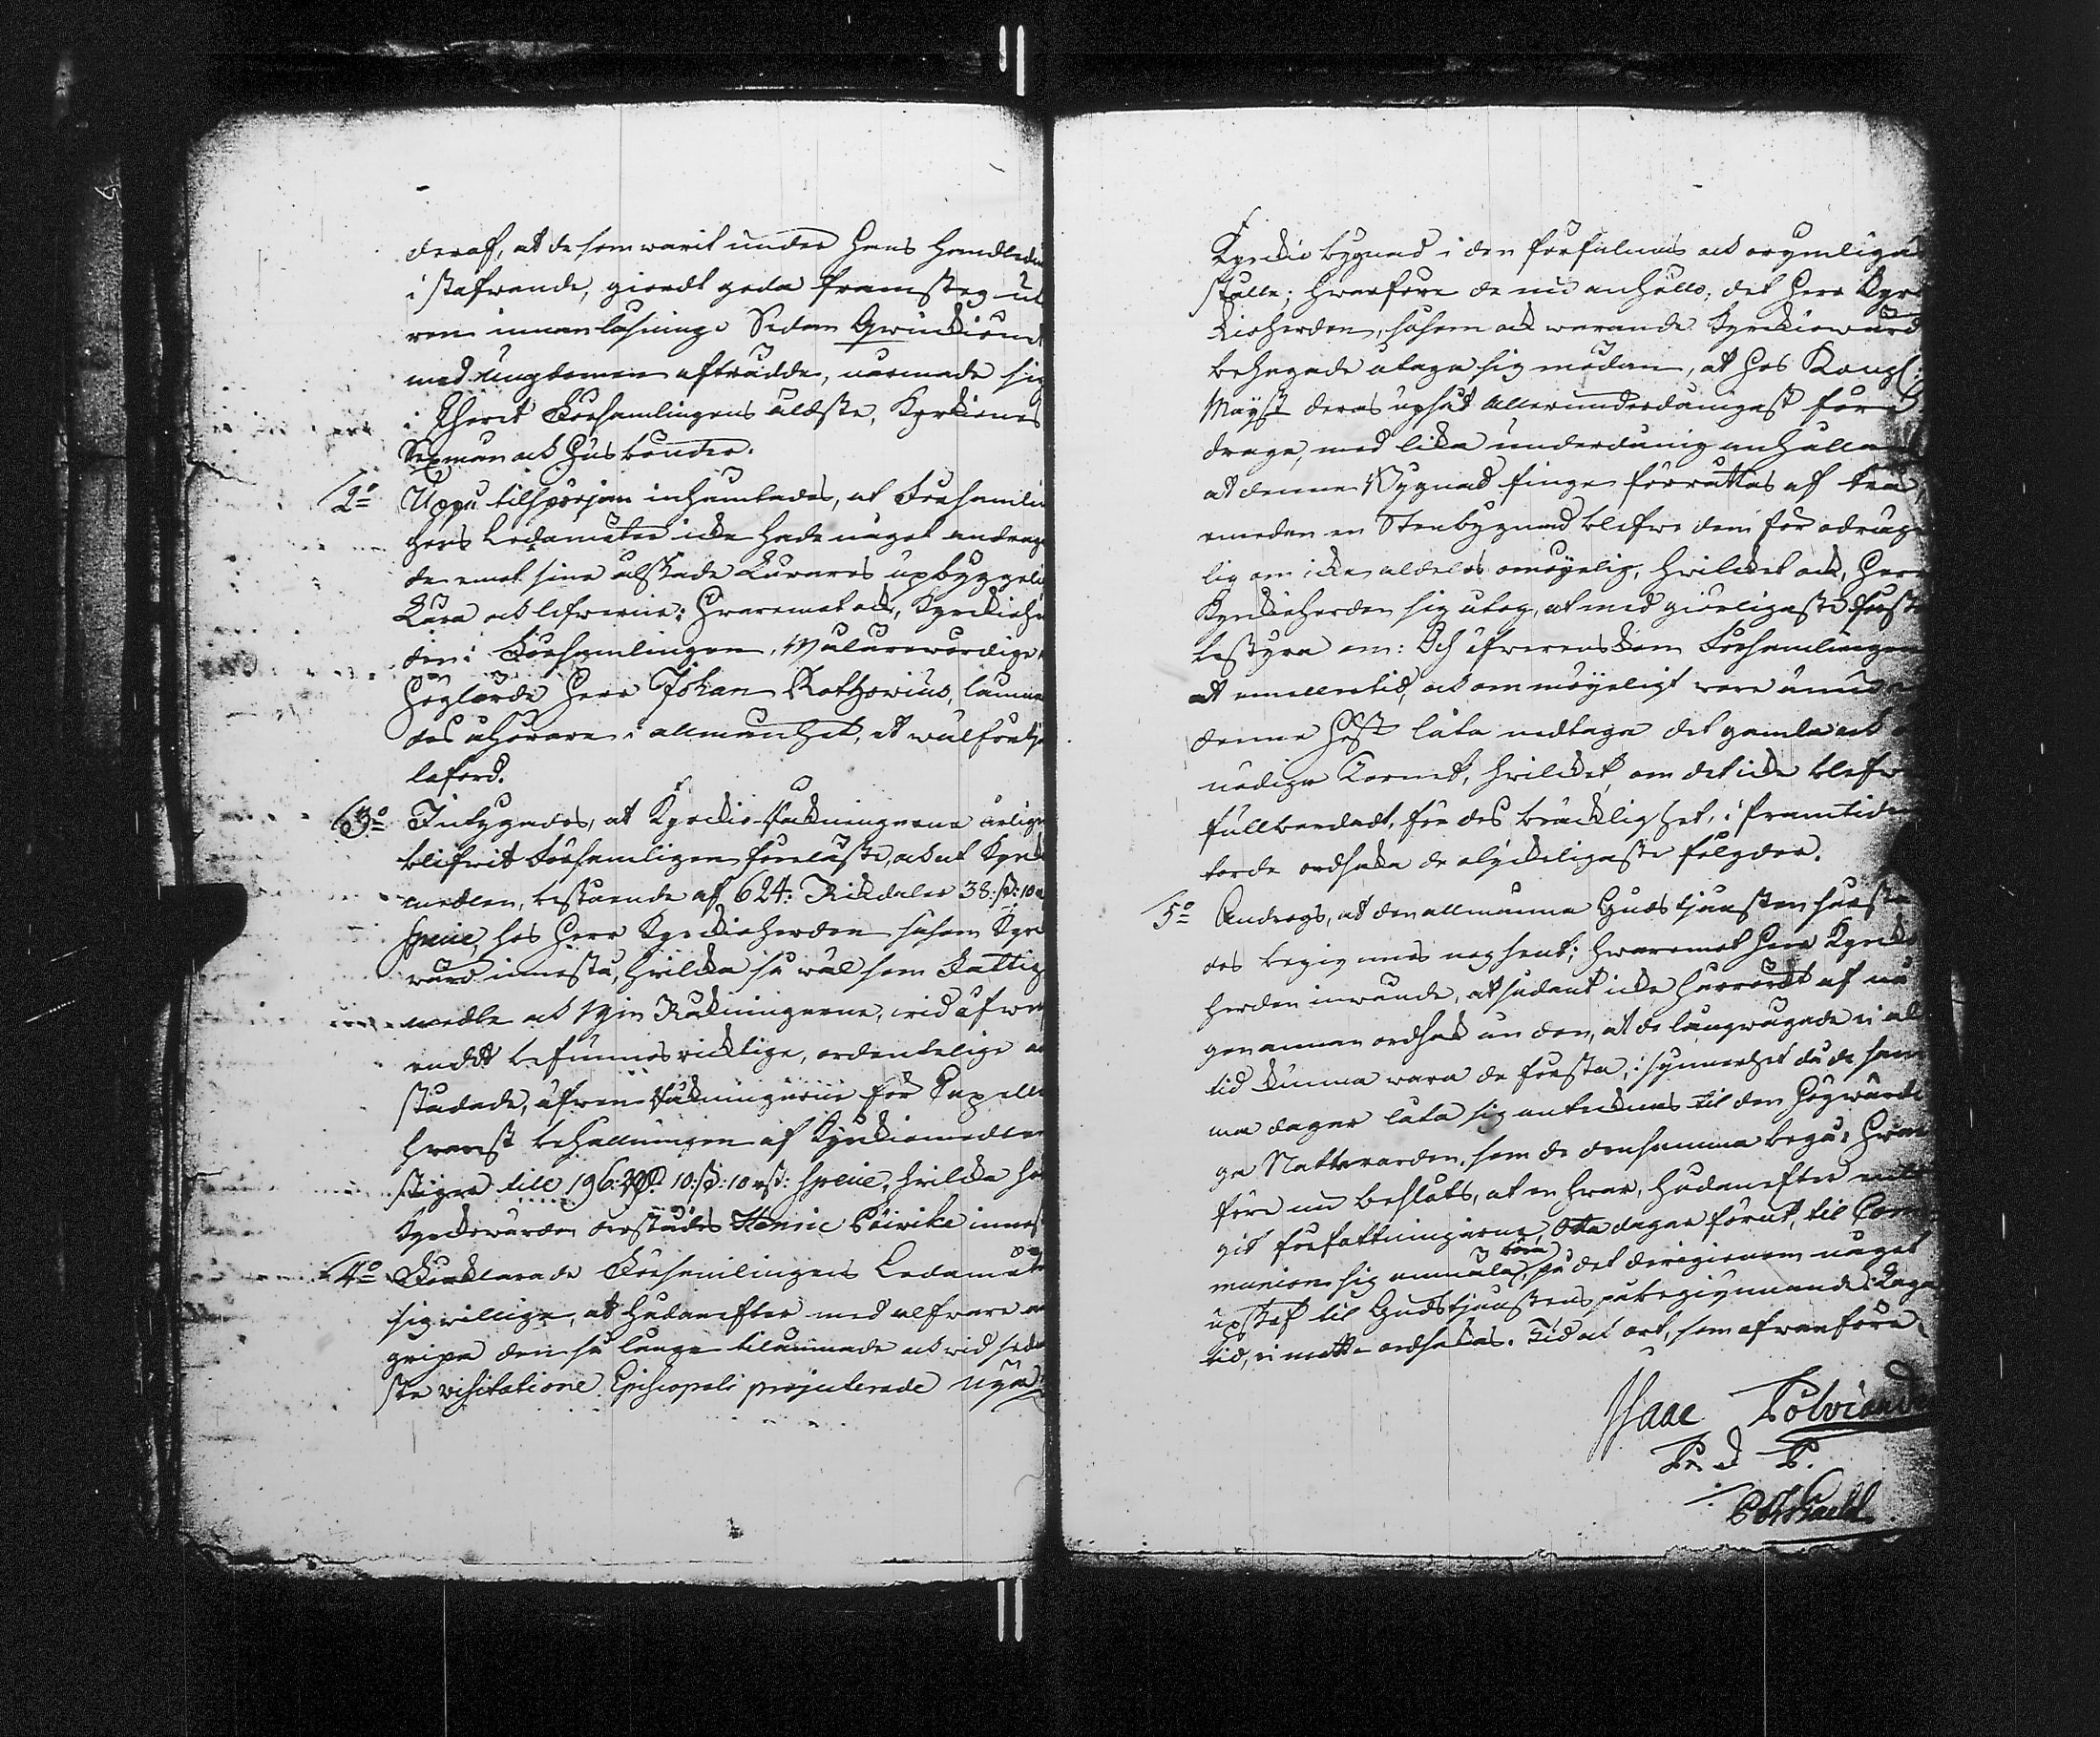 deraf, at de som warit under hans handledn
i stafwande, giordt goda framsteg uti
ren innanläsning. Sedan Qwinkiönet
med ungdomen afträdde, närmade sig
i Choret Församlingens äldste, Kyrkiones
Sexmän ock Husbönder.
2o Uppå tilspörjan inhämtades, at Församlin
gens Ledamöter icke hade något androga
de emot sine älskade Lärares upbyggeli
Lära ock lefwerne: hwaremot ock, Kyrckiohe
den i Församlingen, Wälärewördige
Höglärde Herr Johan Rothovius, lämna
des åhörare i allmänhet, et wälförtjen
laford.
3o Intygades, at Kyrckio-Räkningarna årligen
blifwit Församlingen föreläste, ock at Kyrck
medlen, bestående af 624: Rikdaler 38: ß: 10
specie, hos Herr Kyrckioherden såsom Kyrc
wärd innestå, hwilcka så wäl som Fattig
medle ock Win Räkningarne, wid äfwen
endst befunnos ricktige, ordentelige ock
stadade, äfwen räkningarne för Capelle
hwarst behållningen af Kyrckiomedlen
stiger till 196: Rd. 10: ß: 10 rst: specie, hwilcka hos
Kyrckowärden Henric Päiwike innest
4o Förklarade Församlingens Ledamöter
sig willige, at hädanefter med alfware an
gripa den så länge tilämnade ock wid seda
sta visitatione Episcopali projecterade nya
Kyrckio bygnad i den förfalnas ock orymligas
ställe; hwarföre de nu anhöllo, det Herr Kyrc
kioherden, såsom ock warande Kyrckiowärd
behagade utaga sig mödan, at hos Kongl:
Mayst deras upsåt Allerunderdånigast före
draga, med lika underdånig anhållan
at denna Bygnad finge förrättas af trä,
emedan en Stenbygnad blefwe dem för odräge
lig om icke aldeles omöyelig, hwilcket ock, Herr
Kyrckioherden sig utog, at med giörligaste första
bestyra om: Och öfwerenskom Församlingen
at emellertid, ock om möyeligt wore ännu
denna Höst låta nedtaga det gamla ock o
nödiga Tornet, hwilcket, om det icke blefwe
fullbordadt, för des bräcklighet, i framtiden
torde ordsaka de olyckeligaste fölgder.
5o Androgs, at den allmänna Gudstjensten
des begynnes nog sent; hwaremot Herr Kyrckio
herden inwände, at sådant icke härrördt af nå
gon annan ordsak än den, at de långwägade ei al
tid kunna wara de första, i synnerhet då de sam
ma dagar låta sig anteknas til den Högwärdi
ga Nattwarden, som de densamma begå: hwar
före nu beslöts, at en hwar, hädanefter enli
git författningarne, Otta dagar förut, til Com
munion sig anmäla, böra
på det derigenom något
upskof til Gudstjenstens påbegynnande Laga
tid, ei måtte ordsakas. Tid ock ort, som ofwanföre.
Isaac Polviander
P. & P.